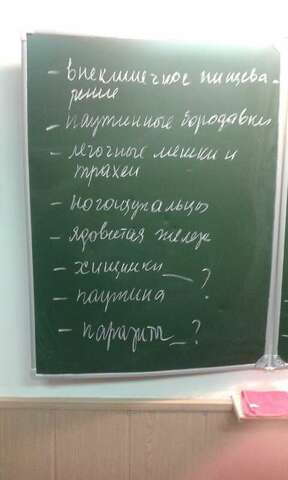 - внекишечное пищева-
рение
- паутинные бородавки
- лёгочные мешки и
трахеи
- ногощупальцы
- ядовитая железа
- хищники_ ?
- паутина
- паразиты_?